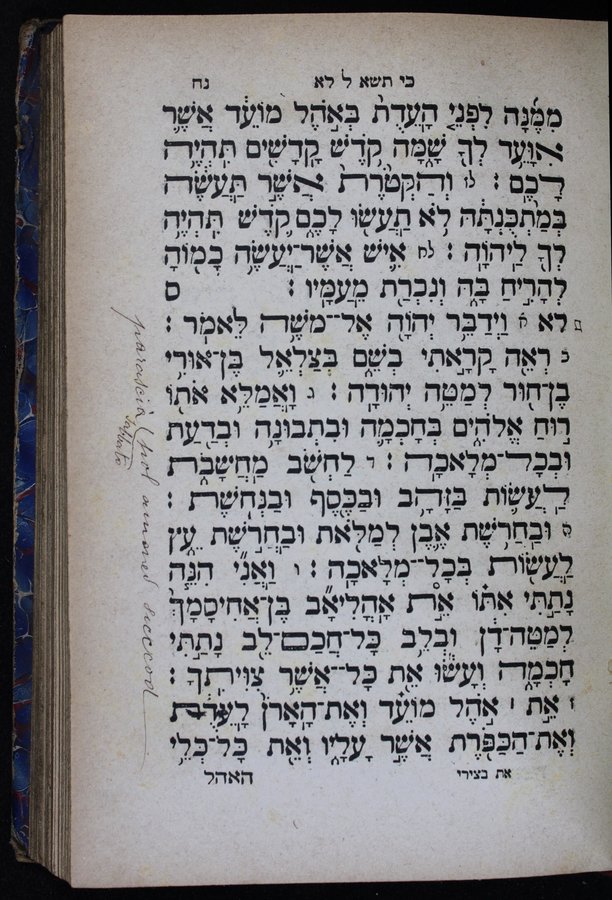 כי תשא ל לא נח
מִמֶּנָּה לִפְנֵי הָעֵדֻת בְּאֹהֶל מוֹעֵד אֲשֶׁר
אִוָּעֵד לְךָ שָׁמָּה קֹדֶשׁ קָדָשִׁים תִּהְיֶה
לָכֶם׃ לז וְהַקְּטֹרֶת אֲשֶׁר תַּעֲשֶׂה
בְּמַתְכֻּנְתָּהּ לֹא תַעֲשׂוּ לָכֶם קֹדֶשׁ תִּהְיֶה
לְךָ לַיהוָֹה׃ לח אִישׁ אֲשֶׁר־יַעֲשֶׂה כָמוֹהָ
לְהָרִיחַ בָּהּ וְנִכְרַת מֵעַמָּיו׃ ס
לא א וַיְדַבֵּר יְהוָֹה אֶל־מֹשֶׁה לֵּאמֹר׃
ב רְאֵה קָרָאתִי בְשֵׁם בְּצַלְאֵל בֶּן־אוּרִי
בֶן־חוּר לְמַטֵּה יְהוּדָה׃ ג וָאֲמַלֵּא אֹתוֹ
רוּחַ אֱלֹהִים בְּחָכְמָה וּבִתְבוּנָה וּבְדַעַת
וּבְכָל־מְלָאכָה׃ ד לַחְשֹׁב מַחֲשָׁבֹת
לַעֲשׂוֹת בַּזָּהָב וּבַכֶּסֶף וּבַנְּחֹשֶׁת׃
ה וּבַחֲרֹשֶׁת אֶבֶן לְמַלֹּאת וּבַחֲרֹשֶׁת עֵץ
לַעֲשׂוֹת בְּכָל־מְלָאכָה׃ ו וַאֲנִי הִנֵּה
נָתַתִּי אִתּוֹ אֵת אָהֳלִיאָב בֶּן־אֲחִיסָמָךְ
לְמַטֵּה־דָן וּבְלֵב כָּל־חֲכַם־לֵב נָתַתִּי
חָכְמָה וְעָשׂוּ אֵת כָּל־אֲשֶׁר צִוִּיתִךָ׃
ז אֵת ׀ אֹהֶל מוֹעֵד וְאֶת־הָאָרֹן לָעֵדֻת
וְאֶת־הַכַּפֹּרֶת אֲשֶׁר עָלָיו וְאֵת כָּל־כְּלֵי
את בצירי האהל
parascia (not